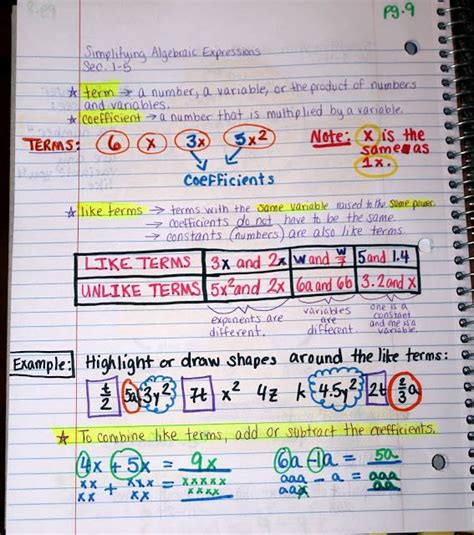 pg.9
Simplifying Algebraic Expressions
Sec. 1-5
☆ term → a number, a variable, or the product of numbers
and variables.
☆ coefficient → a number that is multiplied by a variable.
TERMS: 6 x 3x 5x² Note: x is the
same as
1x.
coefficients
☆ like terms → terms with the same variable raised to the same power.
→ coefficients do not have to be the same.
→ constants (numbers) are also like terms.
LIKE TERMS 3x and 2x w and w/7 5 and 1.4
UNLIKE TERMS 5x² and 2x 6a and 6b 3.2 and x
exponents are different. variables are different. one is a constant and one is a variable.
Example: Highlight or draw shapes around the like terms:
t/2 5a 3y² 7t x² 4z k 4.5y² 2t 2/3a
☆ To combine like terms, add or subtract the coefficients.
4x + 5x = 9x 6a - 1a = 5a
xx xx + xxx xx = xxxxx xxxx aaa aaa - a = aaa aa